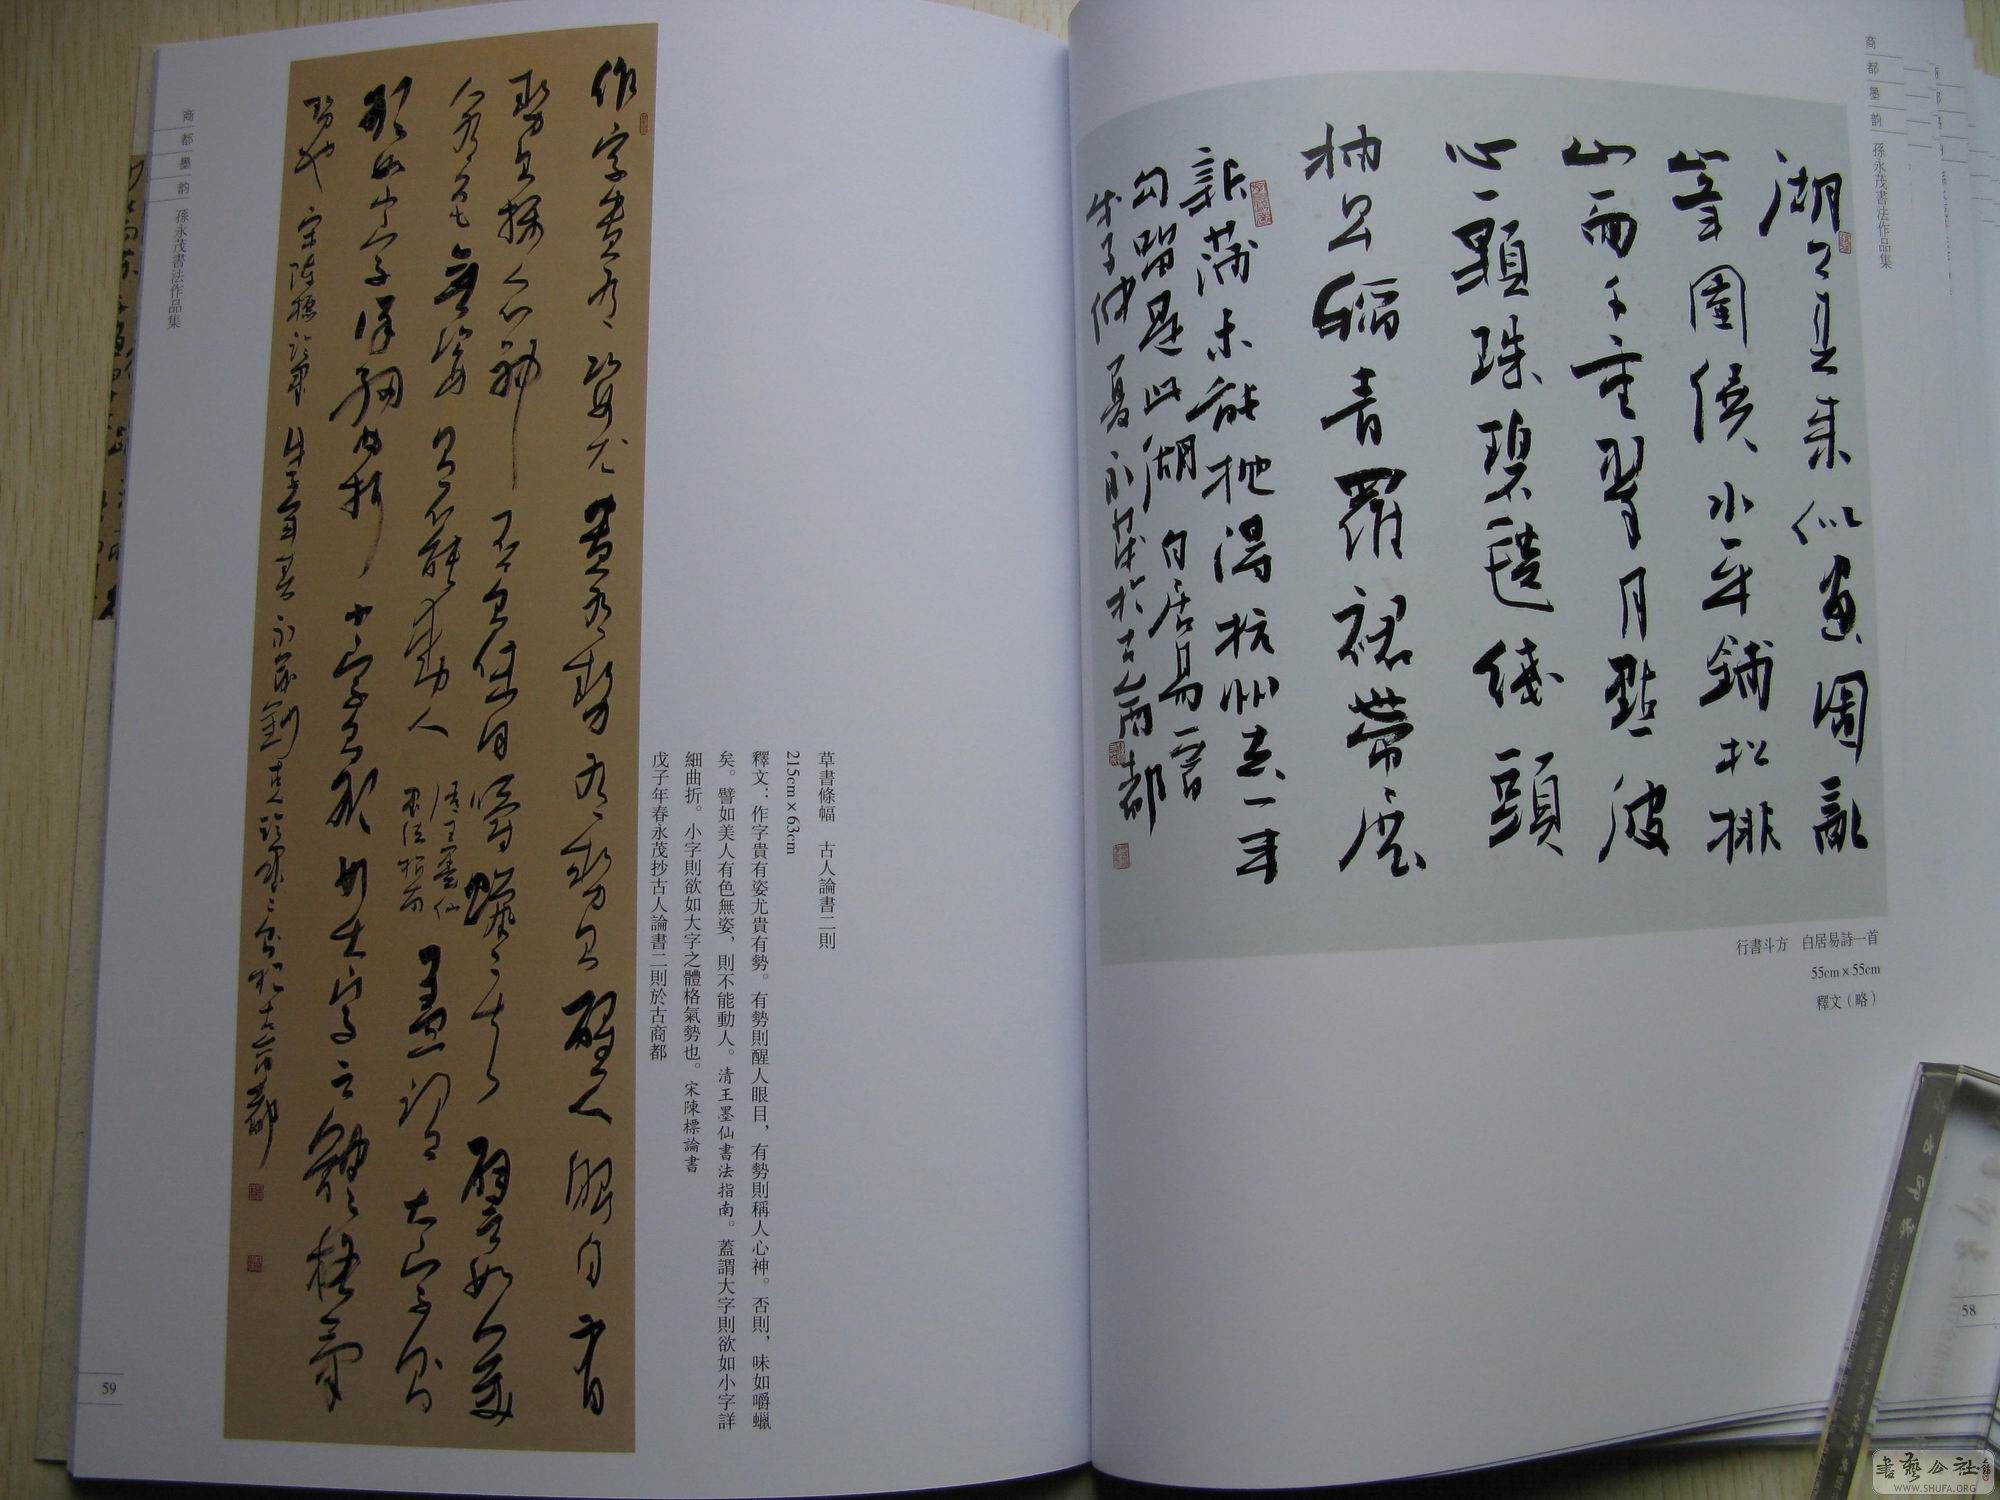 商都墨韵 孫永茂書法作品集
湖上春來似畫圖亂
峯圍繞水平鋪松排
山面千重翠月點波
心一顆珠碧毯綫頭
抽早稻青羅裙帶展
新蒲未能抛得杭州去一半
勾留是此湖 白居易一首
戊子仲夏永茂於古商都
行書斗方 白居易詩一首
55cm×55cm
釋文(略)
58
草書條幅 古人論書二則
215cm×63cm
釋文:作字貴有姿尤貴有勢。有勢則醒人眼目,有勢則稱人心神。否則,味如嚼蠟
矣。譬如美人有色無姿,則不能動人。清王墨仙書法指南。蓋謂大字則欲如小字詳
細曲折。小字則欲如大字之體格氣勢也。宋陳標論書
戊子年春永茂抄古人論書二則於古商都
作字貴有姿尤貴有勢有勢則醒人眼目有
勢則稱人心神否則味如嚼蠟矣譬如美
人有色無姿則不能動人清王墨仙書法指南蓋謂大字則
欲如小字詳細曲折小字則欲如大字之體格氣
勢也 宋陳標論書 戊子年春永茂抄古人論書二則於古商都
商都墨韵 孫永茂書法作品集
59
書藝公社
WWW.SHUFA.ORG